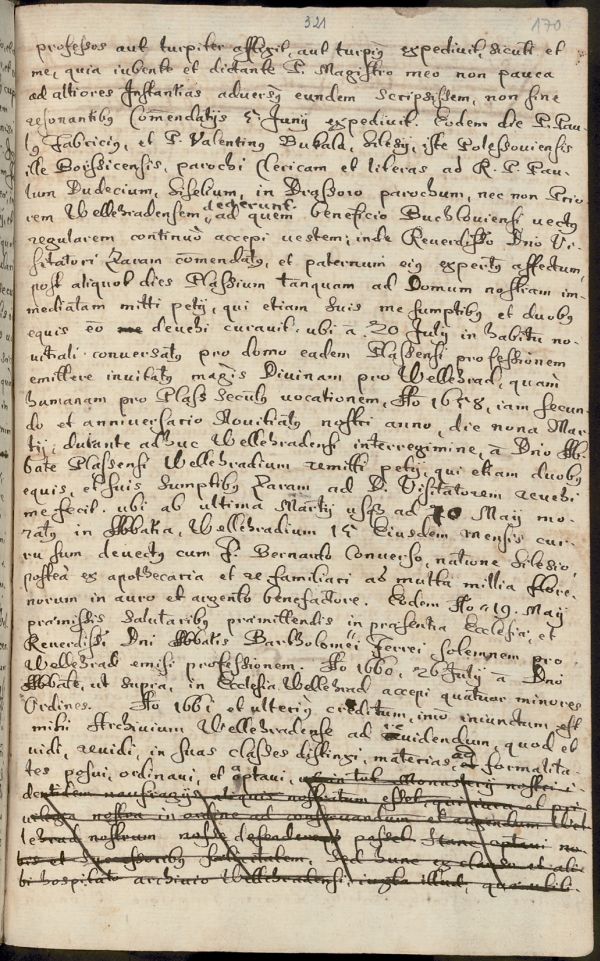 321 170
professos aut turpiter afflixit, aut turpiq expedivit, sicuti et
me, quia iubente et dictante P. Magistro meo non pauca
ad altiores Instantias adversq eundem scripsissem, non sine
resonantibq Comendatijs 5 Junij expedivit. Eodem die P. Pau-
lq Fabriciq, et P. Valentinq Bukala, Silesij, iste Polessoviensis
ille Boijsicensis, parochi Clericam et literas ad R. P. Pau-
lum Dudecium, Silesium, in Drassow parochum, nec non Prio-
rem Wellehradensem dederunt, ad quem beneficio Buchloviensi vectq
regularem continuò accepi vestem; inde Reverdisso Dno Vi-
sitatori Zaram comendatq, et paternum eiq expertq affectum,
post aliquot dies Plassium tanquam ad Domum nostram im-
mediatam mitti petij, qui etiam suis me sumptibq et duobq
equis eo devehi curavit. ubi a 20 Julij in habitu no-
vitiali conversatq pro domo eadem Plassensi professionem
emittere invitatq magis Divinam pro Wellehrad, quam
humanam pro Plass secutq vocationem, Ao 1658, iam secun-
do et anniversario Novitiatq nostri anno, die nona Mar-
tij, durante adhuc Wellehradensi interregimine, a Dno Ab-
bate Plassensi Wellehradium remitti petij, qui etiam duobq
equis, et suis sumptibq Zaram ad D. Visitatorem revehi
me fecit. ubi ab ultima Martij usq ad 10 Maij mo-
ratq in Abbatia, Wellehradium 15 Eiusdem mensis cur-
ru sum devectq cum F. Bernardo Converso, natione Silesio,
posteà ex apothecaria et re familiari ad multa millia flore-
norum in auro et argento benefactore. Eodem Ao 19. Maij
praemissis salutaribq praemittendis in praesentia Ecclesia, et
Reverdissi Dni Abbatis Bartholomei Ferrei solemnem pro
Wellehrad emisi professionem. Ao 1660, 26 Julij a Dno
Abbate, ut supra, in Ecclesia Wellehrad accepi quatuor minores
Ordines. Ao 1661 et ulteriq creditum, imò iniunctum est
mihi Archivium Wellehradense ad videndum, quod et
vidi, revidi, in suas classes distinxi, materias ad formalita-
tes posui, ordinavi, et aptavi,